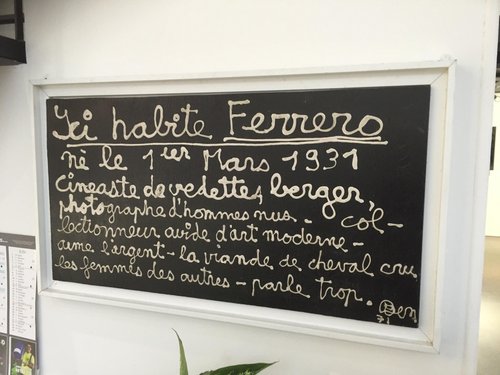 Ici habite Ferrero
né le 1er Mars 1931
Cineaste de vedettes, berger,
photographe d'hommes nus - col-
lectionneur avide d'art moderne -
aime l'argent - la viande de cheval cru
les femmes des autres - parle trop.
Ben
71